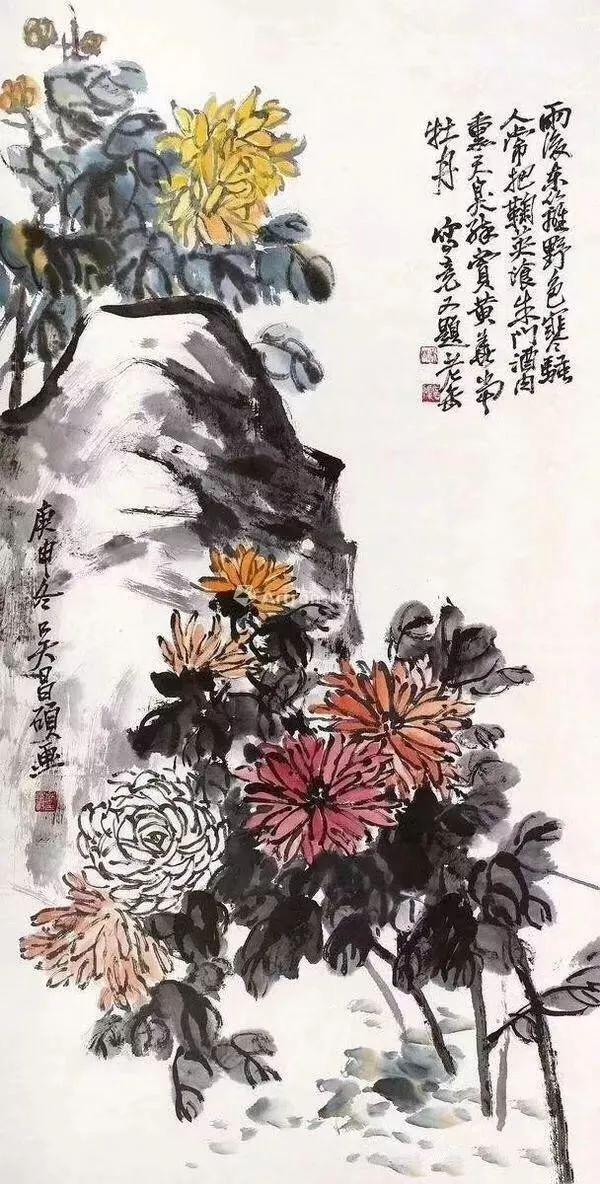 雨後東籬野色寒騷
人常把鞠英湌朱門酒肉
熏天臭賞黃華當
牡丹 寫竟又題 老缶
庚申冬吳昌碩畫